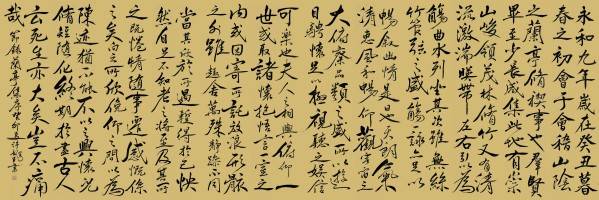 永和九年歲在癸丑暮
春之初會于會稽山陰
之蘭亭脩禊事也群賢
畢至少長咸集此地有崇
山峻領茂林脩竹又有清
流激湍映帶左右引以為
觴曲水列坐其次雖無絲
竹管弦之盛一觴一詠亦足以
暢敘幽情是日也天朗氣
清惠風和暢仰觀宇宙之
大俯察品類之盛所以遊
目騁懷足以極視聽之娛信
可樂也夫人之相與俯仰一
世或取諸懷抱悟言一室之
內或因寄所託放浪形骸
之外雖趣舍萬殊靜躁不同
當其欣於所遇暫得於己快
然自足不知老之將至及其所
之既惓情隨事遷感慨係
之矣向之所欣俛仰之間以為
陳迹猶不能不以之興懷況
脩短隨化終期於盡古人
云死生亦大矣豈不痛
哉 節錄蘭亭序 書